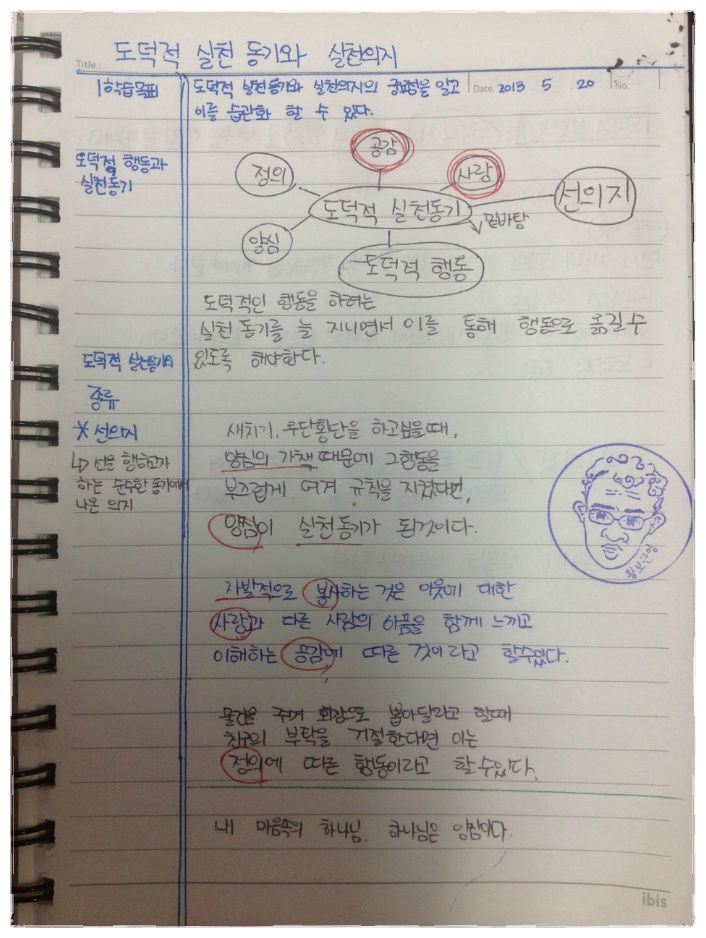 Title : 도덕적 실천 동기와 실천의지
학습목표
도덕적 실천동기와 실천의지의 중요성을 알고
이를 습관화 할 수 있다.
Date. 2013 . 5 . 20
No.
도덕적 행동과
실천동기
공감
정의
사랑
도덕적 실천동기
선의지
밑바탕
양심
도덕적 행동
도덕적인 행동을 하려는
실천동기를 늘 지니면서 이를 통해 행동으로 옮길수
있도록 해야한다.
도덕적 실천동기의
종류
* 선의지
↳ 선을 행하고자
하는 순수한 동기에서
나온 의지
새치기, 무단횡단을 하고싶을때,
양심의 가책때문에 그행동을
부끄럽게 여겨 규칙을 지켰다면,
양심이 실천동기가 된것이다.
자발적으로 봉사하는 것은 이웃에 대한
사랑과 다른 사람의 아픔을 함께 느끼고
이해하는 공감에 따른 것이라고 할수있다.
물건을 주며 회장으로 뽑아달라고 할때
친구의 부탁을 거절한다면 이는
정의에 따른 행동이라고 할수있다.
내 마음속의 하나님. 하나님은 양심이다.
황보근영
ibis